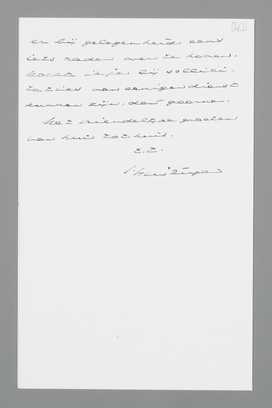 en bij gelegenheid eens
iets nader over te horen.
Mocht ik je bij sollici-
taties van eenigen dienst
kunnen zijn, dan gaarne.
Met vriendelijke groeten
van huis tot huis.
t.t.
J Huizinga